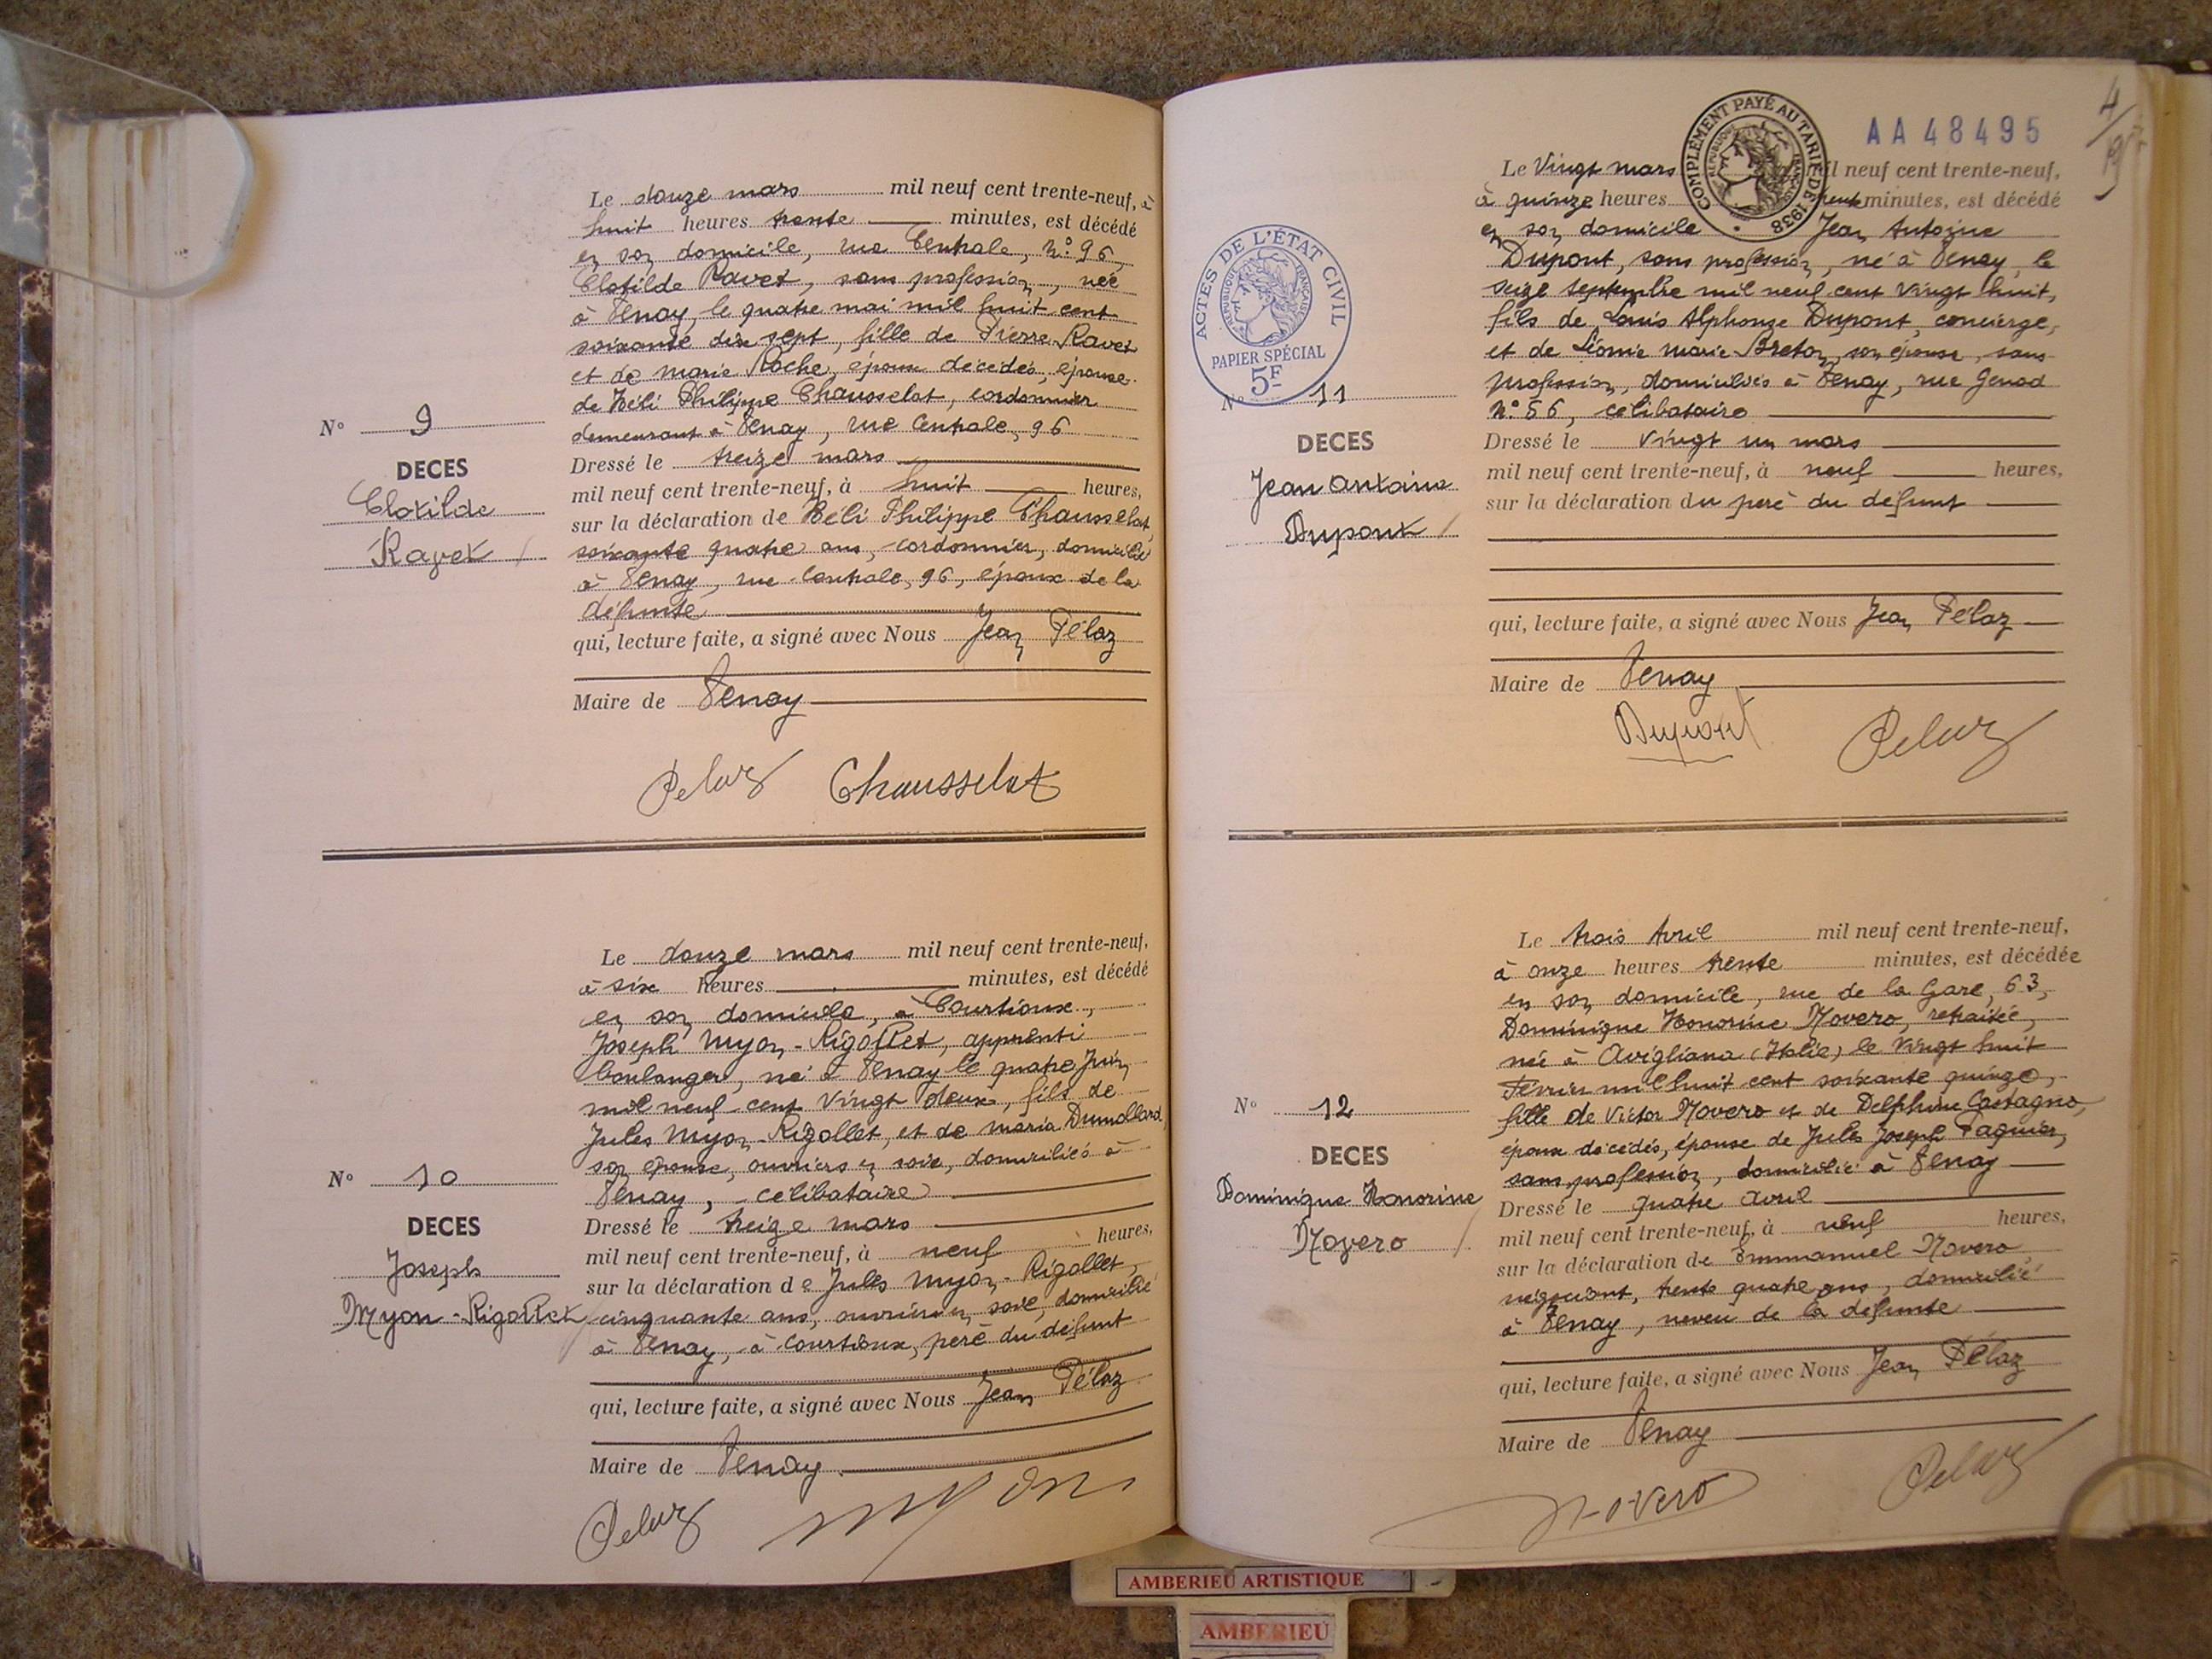 Le douze mars mil neuf cent trente-neuf, à
huit heures trente minutes, est décédé
en son domicile, rue Centrale, n° 96,
Clotilde Ravet, sans profession, née
à Tenay, le quatre mai mil huit cent
soixante dix sept, fille de Pierre Ravet
et de Marie Roche, époux décédés, épouse
de Héli Philippe Chausselat, cordonnier
demeurant à Tenay, rue Centrale, 96
N° 9
DECES
Clotilde
Ravet
Dressé le treize mars
mil neuf cent trente-neuf, à huit heures,
sur la déclaration de Héli Philippe Chausselat,
soixante quatre ans, cordonnier, domicilié
à Tenay, rue Centrale, 96, époux de la
défunte
qui, lecture faite, a signé avec Nous Jean Pélaz
Maire de Tenay
Pelaz Chausselat
Le douze mars mil neuf cent trente-neuf,
à six heures minutes, est décédé
en son domicile, à Courtioux,
Joseph Myon-Rigollet, apprenti
boulanger, né à Tenay le quatre Juin
mil neuf cent vingt deux, fils de
Jules Myon-Rigollet, et de Maria Dumollard,
son épouse, ouvriers en soie, domiciliés à
Tenay, célibataire
N° 10
DECES
Joseph
Myon-Rigollet
Dressé le treize mars
mil neuf cent trente-neuf, à neuf heures,
sur la déclaration de Jules Myon-Rigollet,
cinquante ans, ouvrier en soie, domicilié
à Tenay, à Courtioux, père du défunt
qui, lecture faite, a signé avec Nous Jean Pélaz
Maire de Tenay
Pelaz Myon
4
COMPLÉMENT PAYÉ AU TARIF DE 1938
RÉPUBLIQUE FRANÇAISE
AA 48495
Le Vingt mars mil neuf cent trente-neuf,
à quinze heures trente minutes, est décédé
en son domicile Jean Antoine
Dupont, sans profession, né à Tenay, le
seize septembre mil neuf cent vingt huit,
fils de Louis Alphonse Dupont, concierge,
et de Léonie Marie Breton, son épouse, sans
profession, domiciliés à Tenay, rue Genod
n° 56, célibataire
ACTES DE L'ÉTAT CIVIL
RÉPUBLIQUE FRANÇAISE
PAPIER SPÉCIAL
5F
N° 11
DECES
Jean Antoine
Dupont
Dressé le vingt un mars
mil neuf cent trente-neuf, à neuf heures,
sur la déclaration du père du défunt
qui, lecture faite, a signé avec Nous Jean Pélaz
Maire de Tenay
Dupont Pelaz
Le trois Avril mil neuf cent trente-neuf,
à onze heures trente minutes, est décédée
en son domicile, rue de la Gare, 63,
Dominique Honorine Novero, retraitée,
née à Avigliana (Italie) le vingt huit
Février mil huit cent soixante quinze,
fille de Victor Novero et de Delphine Castagno,
époux décédés, épouse de Jules Joseph Paquier,
sans profession, domicilié à Tenay
N° 12
DECES
Dominique Honorine
Novero
Dressé le quatre avril
mil neuf cent trente-neuf, à neuf heures,
sur la déclaration de Emmanuel Novero,
négociant, trente quatre ans, domicilié
à Tenay, neveu de la défunte
qui, lecture faite, a signé avec Nous Jean Pélaz
Maire de Tenay
Novero Pelaz
AMBERIEU ARTISTIQUE
AMBERIEU